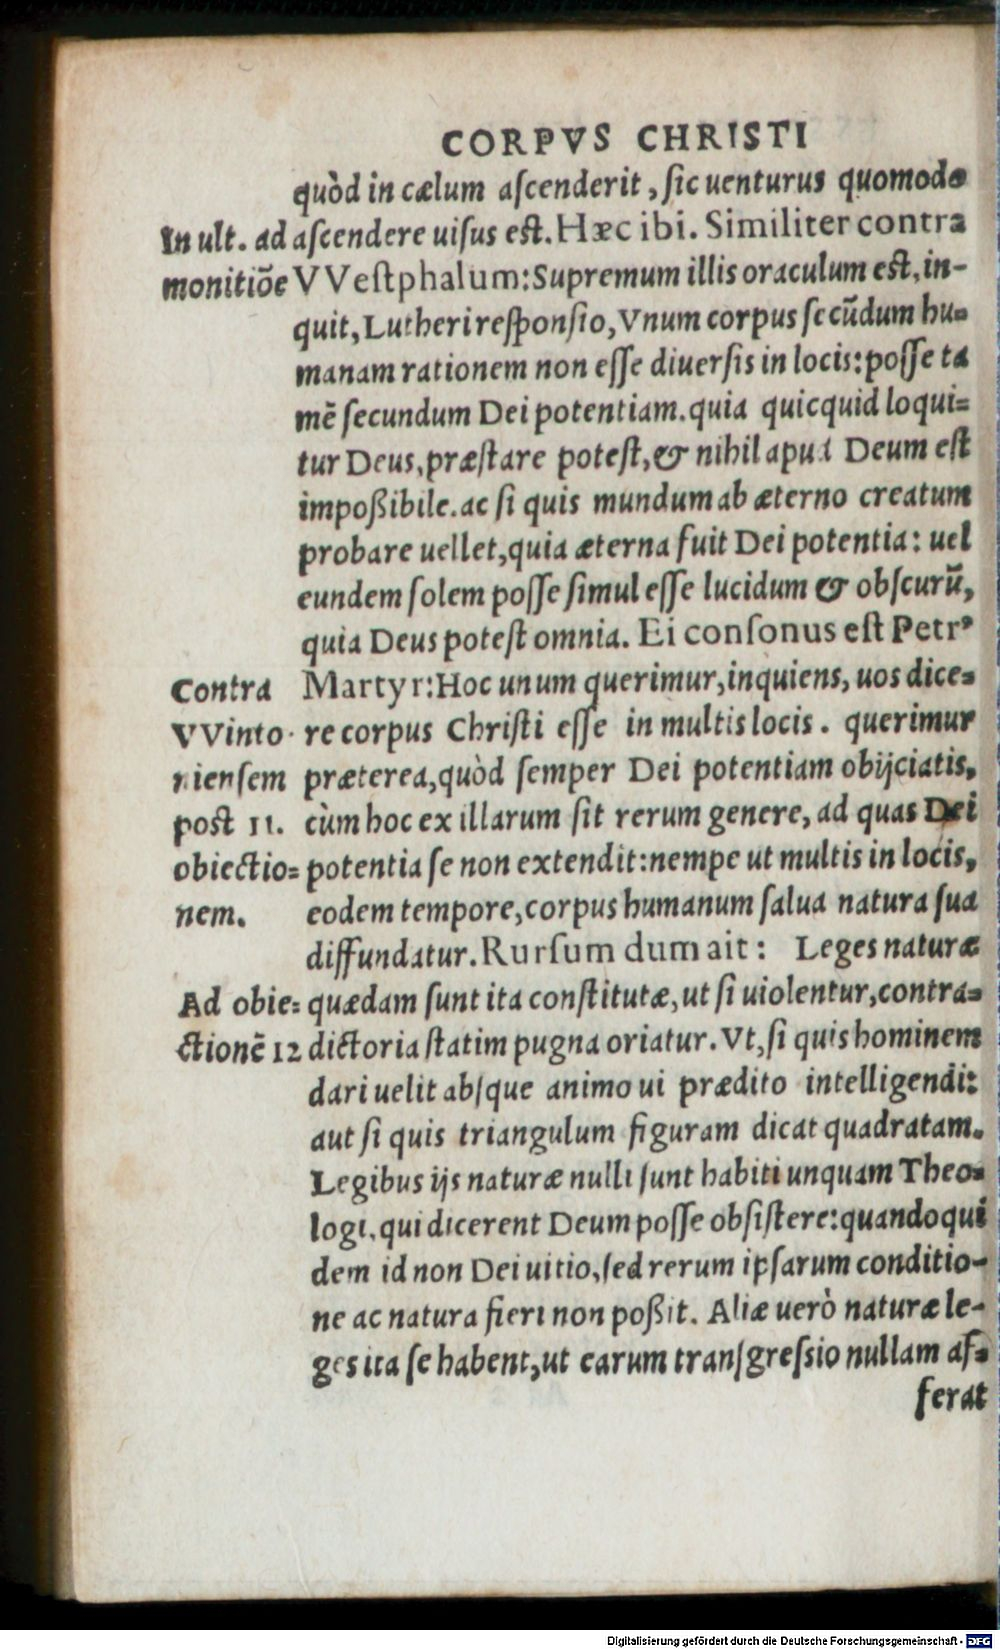 CORPVS CHRISTI
quòd in cælum ascenderit, sic uenturus quomodo
In ult. ad
ascendere uisus est. Hæc ibi. Similiter contra
monitiõe
VVestphalum: Supremum illis oraculum est, in-
quit, Lutheri responsio, Vnum corpus secũdum hu-
manam rationem non esse diuersis in locis: posse ta
mẽ secundum Dei potentiam. quia quicquid loqui-
tur Deus, præstare potest, & nihil apud Deum est
impoßibile. ac si quis mundum ab æterno creatum
probare uellet, quia æterna fuit Dei potentia: uel
eundem solem posse simul esse lucidum & obscurũ,
quia Deus potest omnia. Ei consonus est Petrꝰ
Martyr: Hoc unum querimur, inquiens, uos dice-
re corpus Christi esse in multis locis. querimur
præterea, quòd semper Dei potentiam obijciatis,
cùm hoc ex illarum sit rerum genere, ad quas Dei
potentia se non extendit: nempe ut multis in locis,
eodem tempore, corpus humanum salua natura sua
diffundatur. Rursum dum ait: Leges naturæ
Contra
VVinto
niensem
post 11.
obiectio-
nem.
quædam sunt ita constitutæ, ut si uiolentur, contra-
dictoria statim pugna oriatur. Vt, si quis hominem
Ad obie-
ctionẽ 12
dari uelit absque animo ui prædito intelligendi:
aut si quis triangulum figuram dicat quadratam.
Legibus ijs naturæ nulli sunt habiti unquam Theo-
logi, qui dicerent Deum posse obsistere: quandoqui
dem id non Dei uitio, sed rerum ipsarum conditio-
ne ac natura fieri non poßit. Aliæ uerò naturæ le-
ges ita se habent, ut earum transgressio nullam af-
ferat
Digitalisierung gefördert durch die Deutsche Forschungsgemeinschaft - DFG